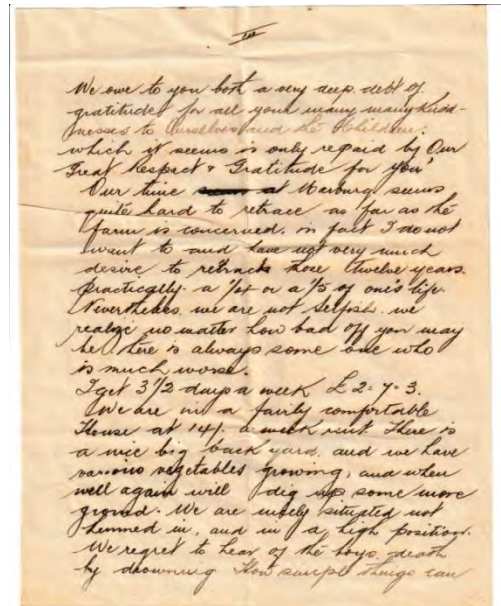 III
We owe to you both a very deep debt of
gratitude for all your many many kind-
nesses to Ourselves and the Children.
which it seems is only repaid by Our
Great Respect & Gratitude for You'
Our time at Marburg seems
quite hard to retrace as far as the
farm is concerned. in fact I do not
want to and have not very much
desire to retrace those twelve years.
practically. a 1/4 or a 1/5 of one's life.
Nevertheless, we are not selfish. we
realize no matter how bad off you may
be there is always some one who
is much worse.
I get 3 1/2 days a week £2-7-3.
We are in a fairly comfortable
House at 14/. a week rent. There is
a nice big back yard, and we have
various vegetables growing, and when
well again will dig up some more
ground. We are nicely situated not
hemmed in, and in a high position.
We regret to hear of the boys death
by drowning How simple things can